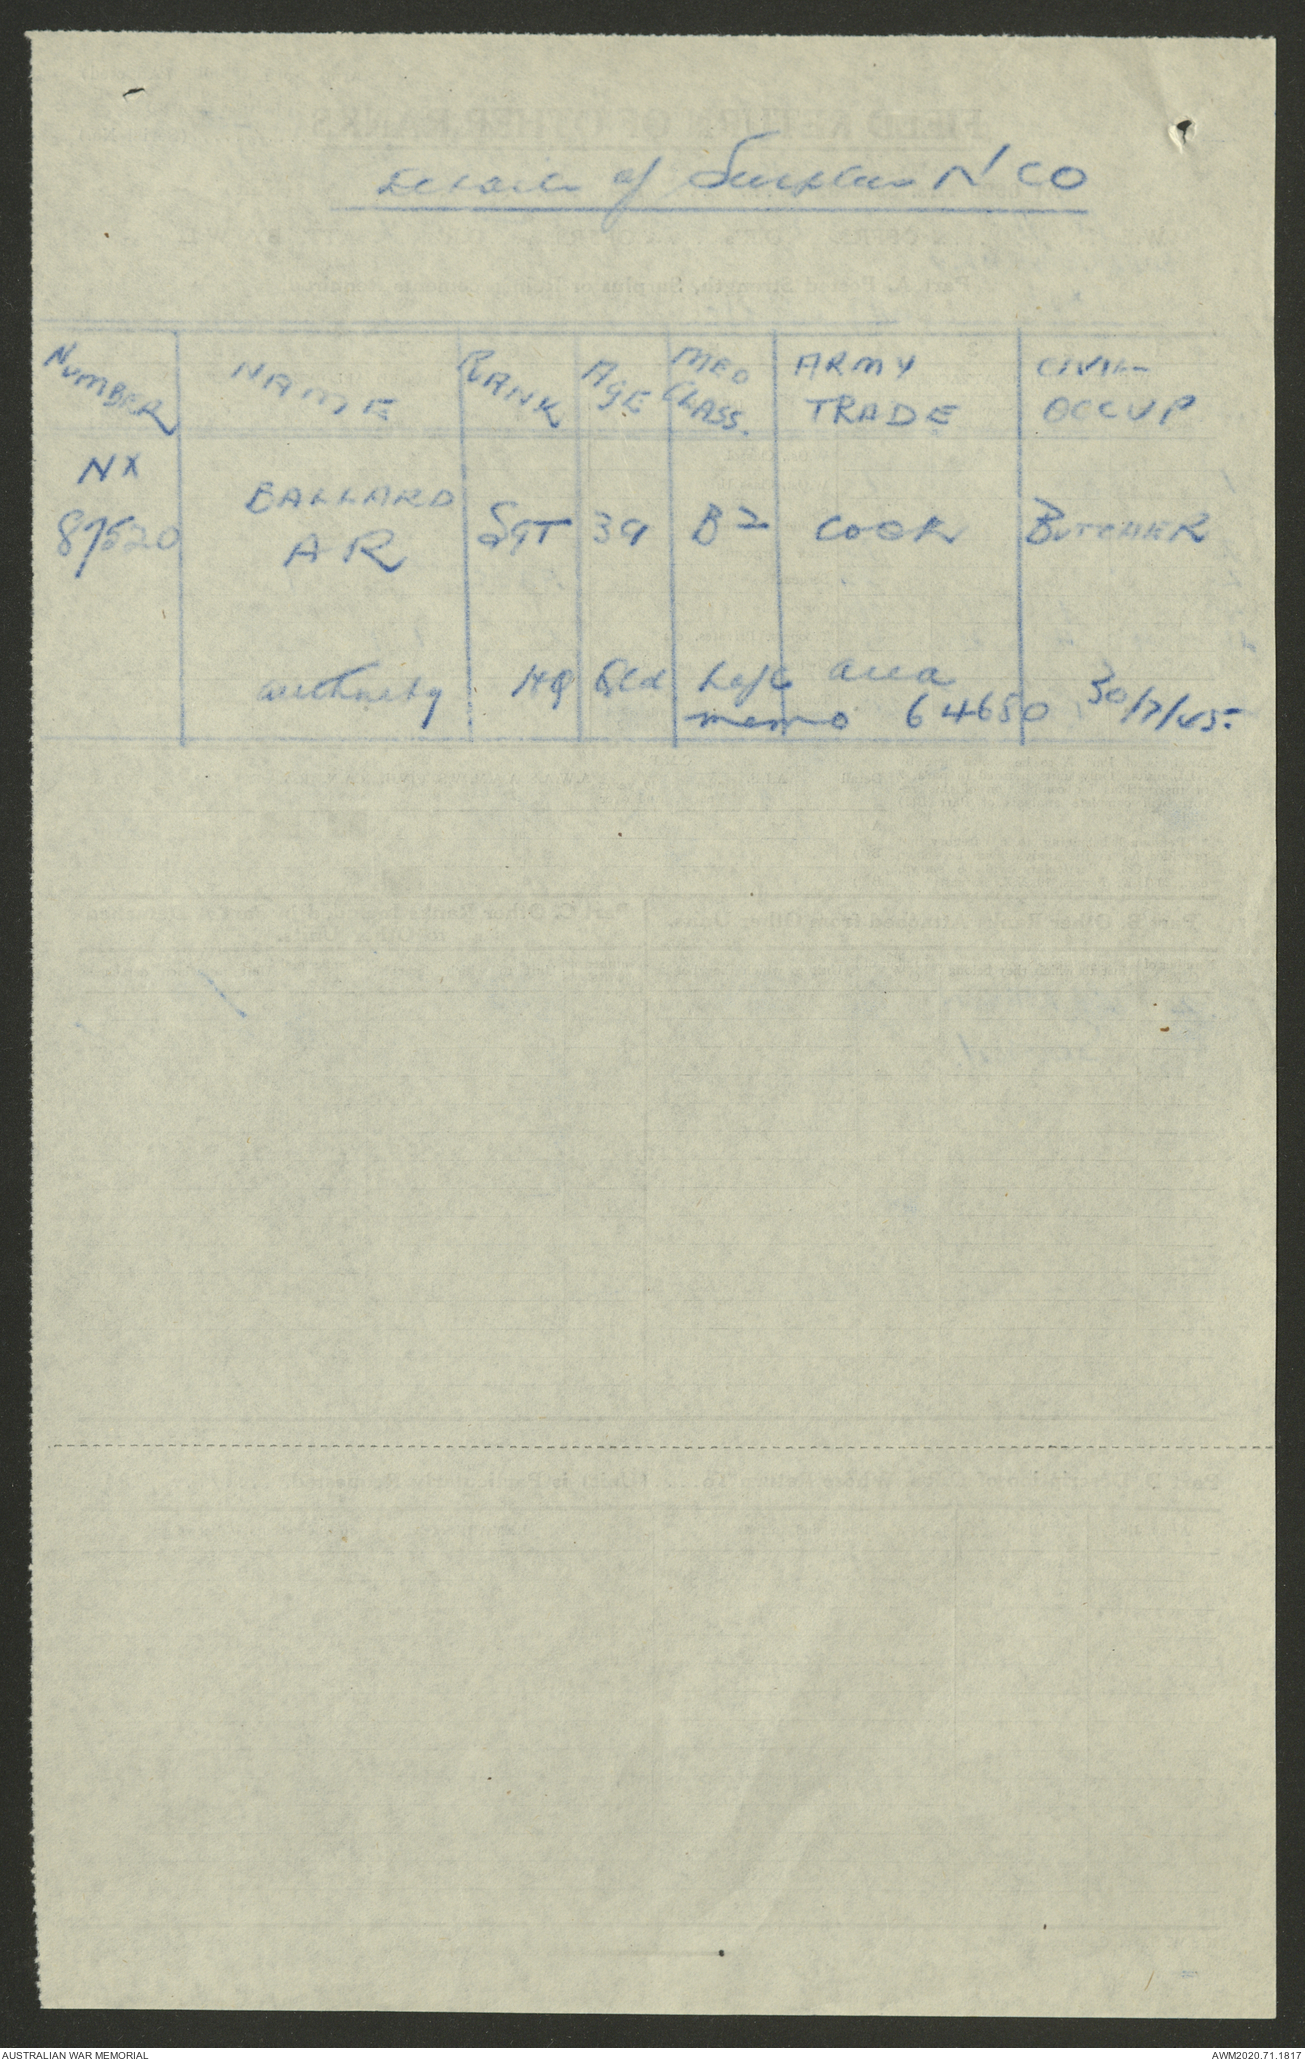 Details of Surplus NCO
NUMBER NAME RANK AGE MED CLASS. ARMY TRADE CIVIL OCCUP
NX 87520 BALLARD A R SGT 39 B2 COOK BUTCHER
authority HQ Qld L of C area
memo 64650 30/7/45.
AUSTRALIAN WAR MEMORIAL
AWM2020.71.1817